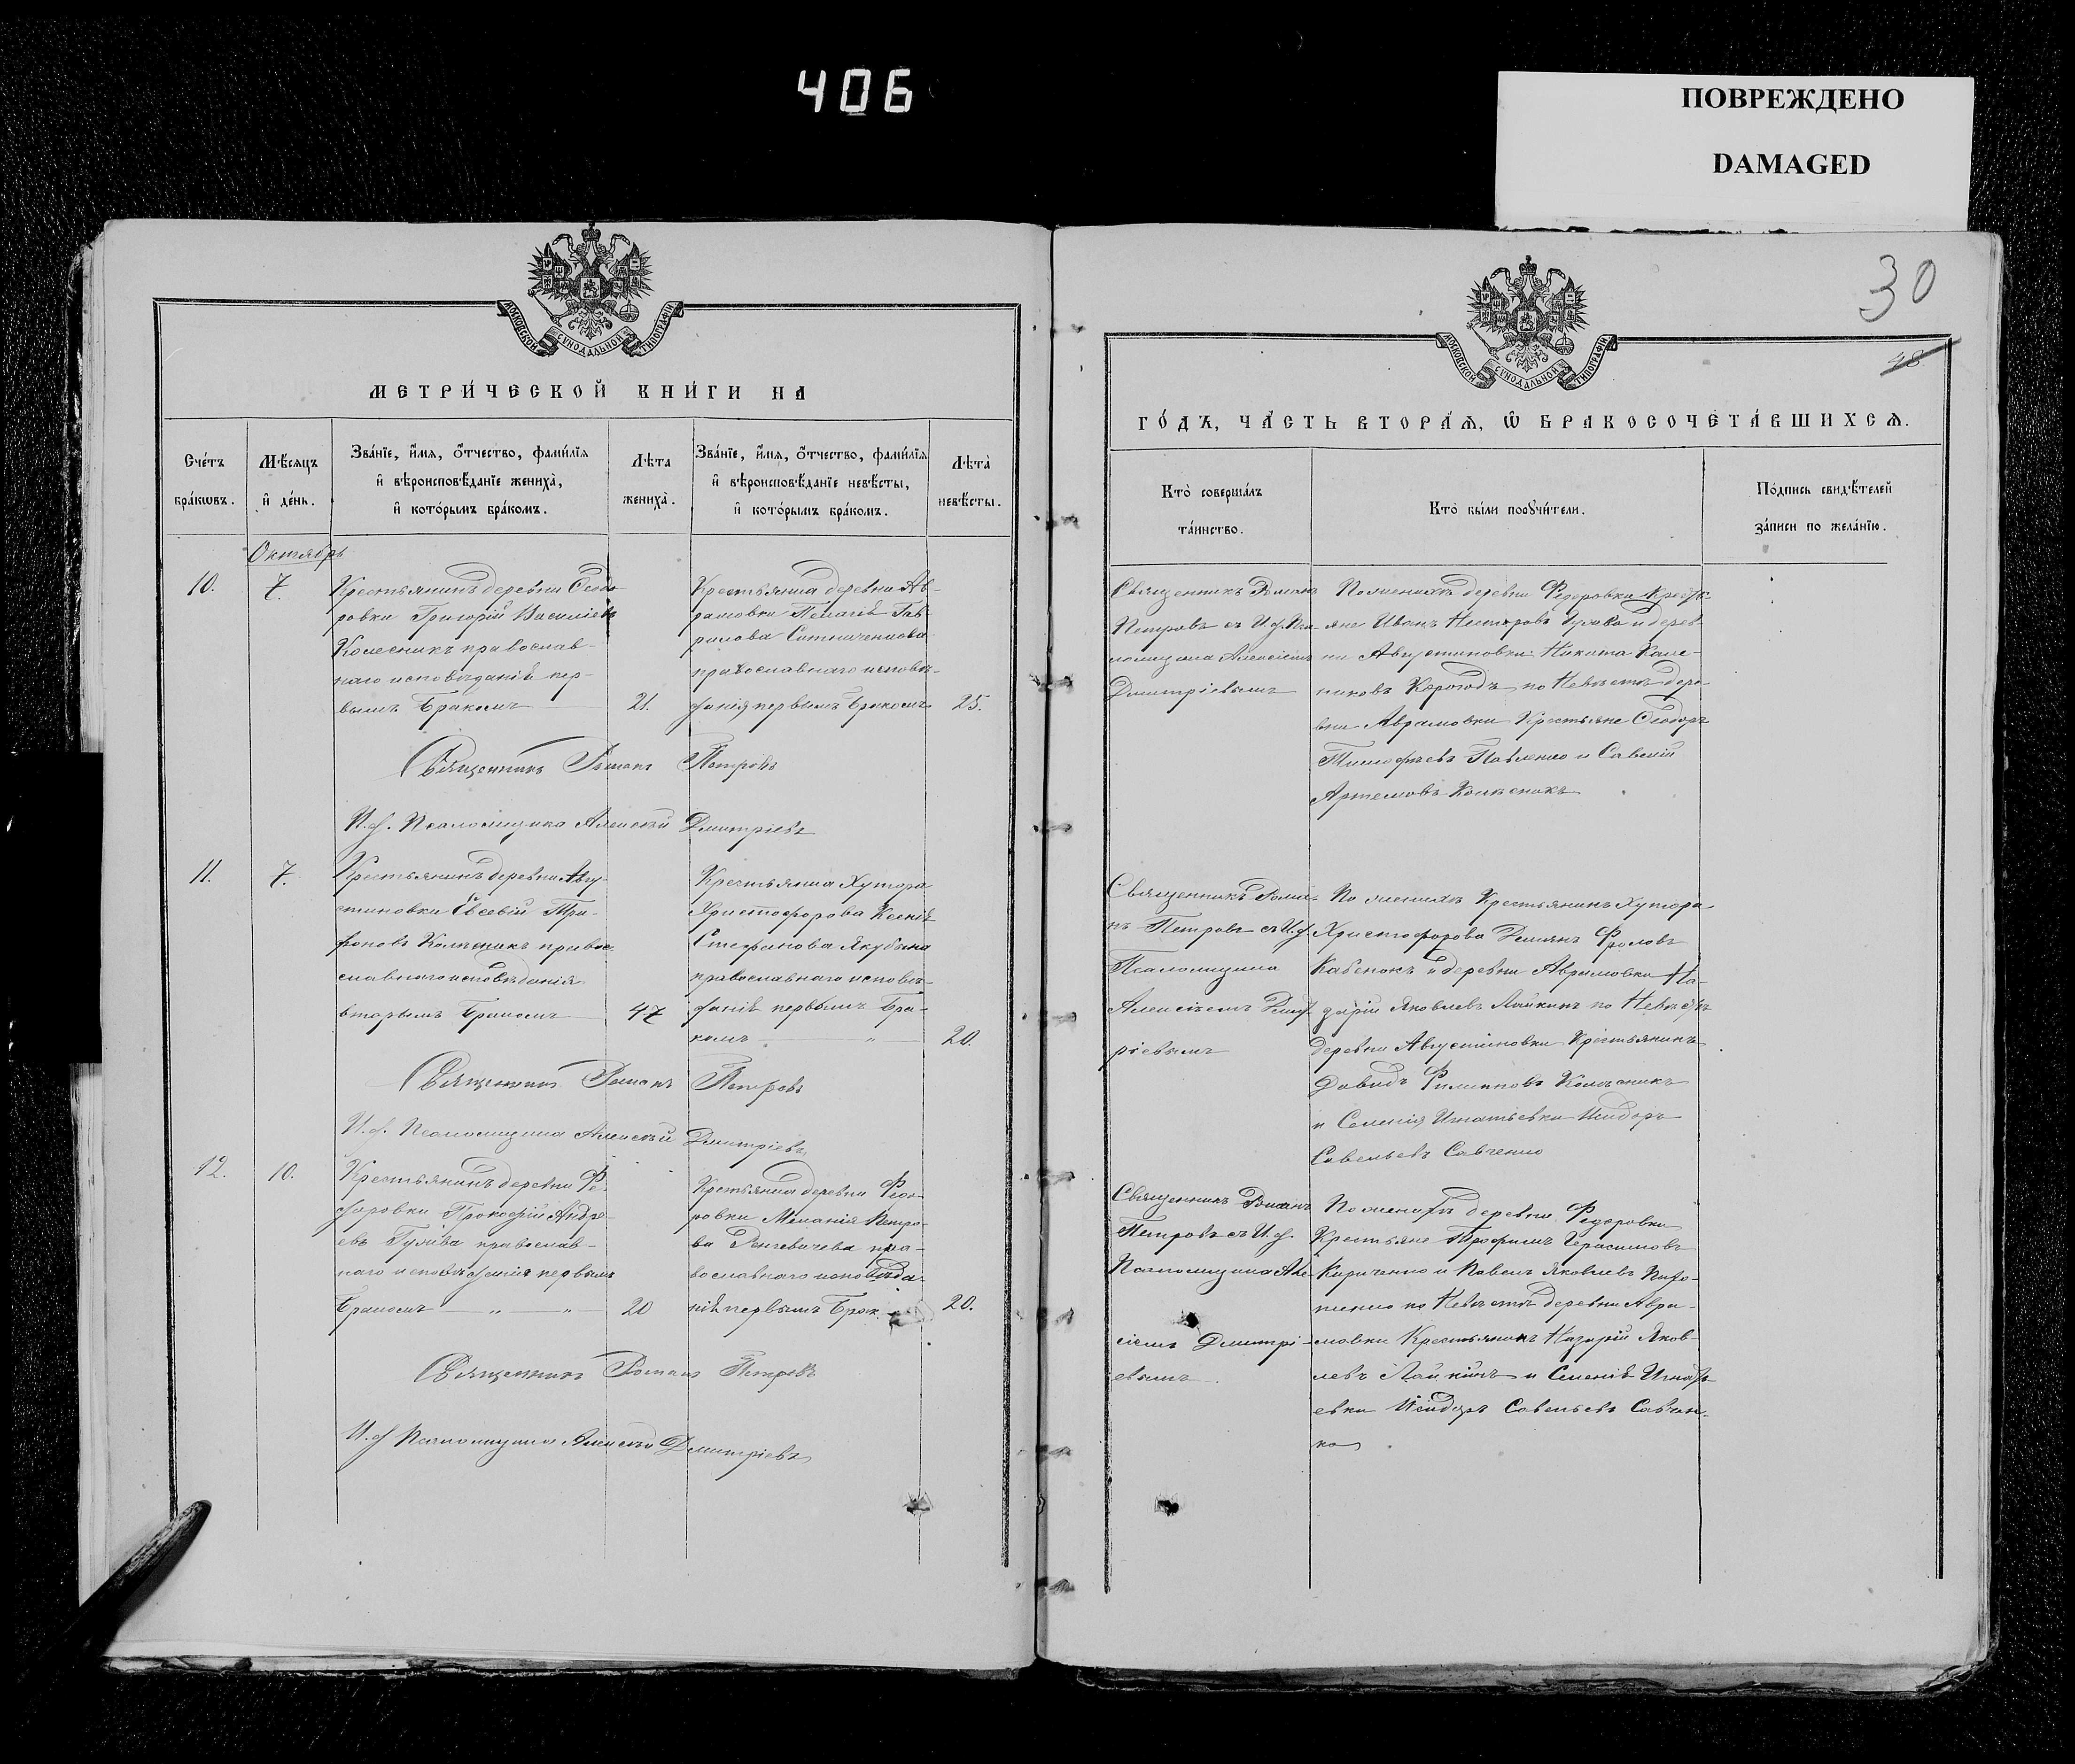 406
ПОВРЕЖДЕНО
DAMAGED
30
48
МОСКОВСКОЙ СѴНОДАЛЬНОЙ ТИПОГРАФІИ
МЕТРИ́ЧЕСКОЙ КНИ́ГИ НА
Сче́тъ бра́кωвъ.
Мѣ́сяцъ и҆ де́нь.
Зва́нїе, и҆́мя, ѻ҆́тчество, фами́лїя
и҆ вѣроисповѣ́данїе жениха̀,
и҆ кото́рымъ бра́комъ.
Лѣта жениха̀.
Зва́нїе, и҆́мя, ѻ҆́тчество, фами́лїя
и҆ вѣроисповѣ́данїе невѣ́сты,
и҆ кото́рымъ бра́комъ.
Лѣта̀ невѣ́сты.
Октябрь
10.
7.
Крестьянинъ деревни Ѳеодо-
ровки Григорій Василіевъ
Колесникъ православ-
наго исповѣданія пер-
вымъ бракомъ
21.
Крестьянка деревни Ав-
рамовки Пелагія Гав-
рилова
православнаго исповѣ-
данія первымъ бракомъ
25.
Священникъ Романъ Петровъ
И. д. Псаломщика Алексѣй Дмитріевъ
11.
7.
Крестьянинъ деревни Авгу-
стиновки Евсевій Три-
фоновъ Колѣсникъ правос-
лавнаго исповѣданія
вторымъ бракомъ
47
Крестьянка Хутора
Христофорова Ксенія
Стефанова Якубына
православнаго исповѣ-
данія первымъ бра-
комъ "
20.
Священникъ Романъ Петровъ
И. д. Псаломщика Алексѣй Дмитріевъ
12.
10.
Крестьянинъ деревни Ѳе-
доровки Прокофій Андре-
евъ Гулива православ-
наго исповѣданія первымъ
бракомъ " "
20
Крестьянка деревни Ѳеод-
ровки Меланія Петро-
ва пра-
вославнаго исповѣда-
нія первымъ брак.
20.
Священникъ Романъ Петровъ
И. д. Псаломщика Алексѣй Дмитріевъ
МОСКОВСКОЙ СѴНОДАЛЬНОЙ ТИПОГРАФІИ
ГО́ДЪ, ЧА́СТЬ ВТОРА́Я, Ѽ БРАКОСОЧЕТА́ВШИХСЯ.
Кто̀ соверша́лъ
та́инство.
Кто̀ бы́ли поѹчи́тели.
По́дпись свидѣ́телей
за́писи по жела́нїю.
Священникъ Романъ
Петровъ съ И. д. Пса-
ломщика Алексіемъ
Дмитріевымъ
По женихѣ деревни Ѳедоровки Крестья-
яне Иванъ и дерев-
ни Августиновки Никита
по Невѣстѣ дере-
вни Аврамовки Крестьяне Ѳеодоръ
Тимофѣевъ Павленко и Савелій
Артемовъ
Священникъ Рома-
нъ Петровъ съ И. д.
Псаломщика
Алексіемъ Дмит-
ріевымъ
По женихѣ Крестьянинъ Хутора
Христофорова Демянъ Фроловъ
Кабенокъ и деревни Аврамовки На-
зарій Яковлевъ Лайкинъ по Невѣстѣ
деревни Августиновки Крестьянинъ
Давидъ Филиповъ Колѣсникъ
и Селенія Игнатьевки Исидоръ
Савельевъ Савченко
Священникъ Романъ
Петровъ съ И. д.
Псаломщика Але-
сіемъ Дмитрі-
евымъ
По женихѣ деревни Ѳедоровки
Крестьяне Трофимъ Герасимовъ
Кириченко и Павелъ Яковлевъ
по Невѣстѣ деревни Авра-
мовки Крестьянинъ Назарій Яков-
левъ Лайкинъ и Селенія Игнать-
евки Исидоръ Савельевъ Савчен-
ко